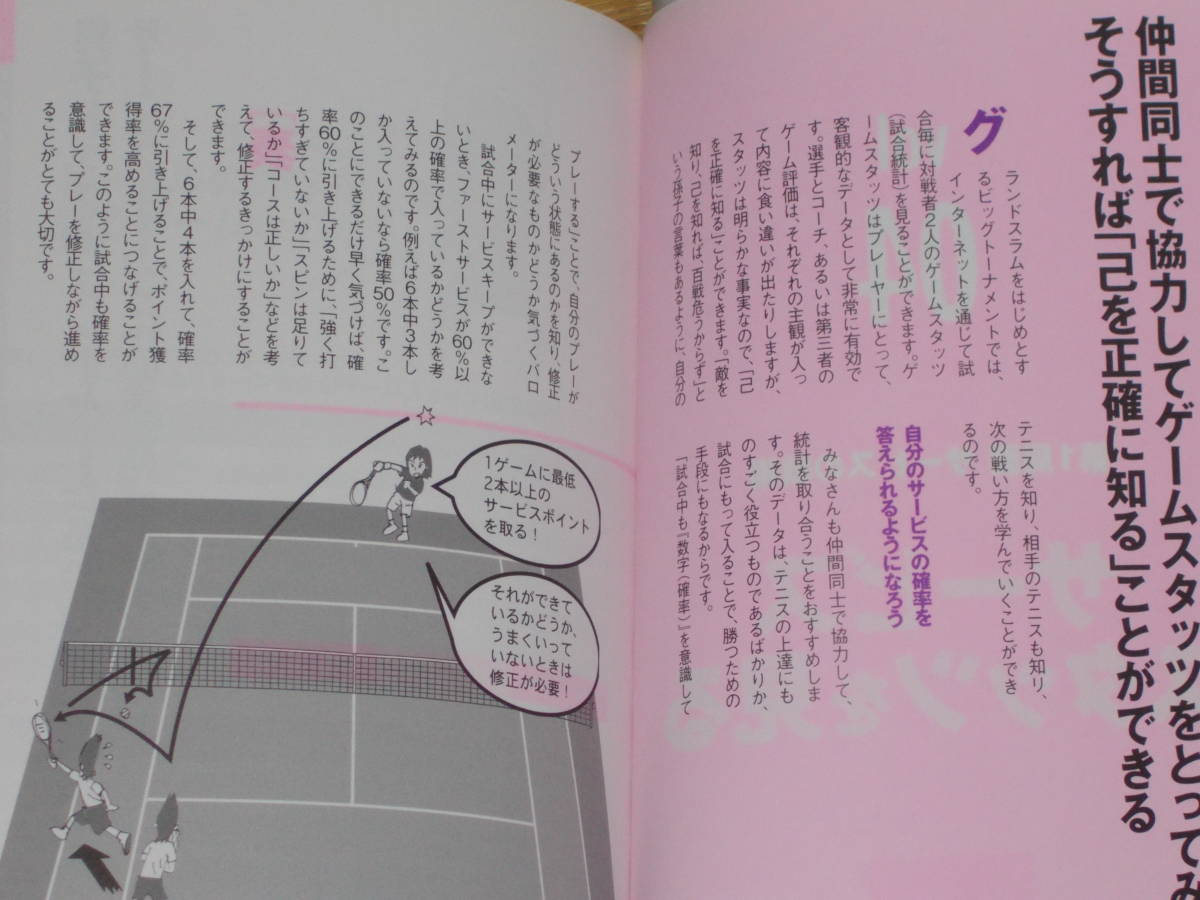 仲間同士で協力してゲームスタッツをとってみ
そうすれば「己を正確に知る」ことができる
グ
ランドスラムをはじめとす
るビッグトーナメントでは、
インターネットを通じて試
合毎に対戦者2人のゲームスタッツ
（試合統計）を見ることができます。ゲ
ームスタッツはプレーヤーにとって、
客観的なデータとして非常に有効で
す。選手とコーチ、あるいは第三者の
ゲーム評価は、それぞれの主観が入っ
て内容に食い違いが出たりしますが、
スタッツは明らかな事実なので、「己
を正確に知る」ことができます。「敵を
知り、己を知れば、百戦危うからず」と
いう孫子の言葉もあるように、自分の
テニスを知り、相手のテニスも知り、
次の戦い方を学んでいくことができ
るのです。
自分のサービスの確率を
答えられるようになろう
みなさんも仲間同士で協力して、
統計を取り合うことをおすすめしま
す。そのデータは、テニスの上達にも
のすごく役立つものであるばかりか、
試合にもって入ることで、勝つための
手段にもなるからです。
「試合中も『数字（確率）』を意識して
プレーする」ことで、自分のプレーが
どういう状態にあるのかを知り、修正
が必要なものかどうか気づくバロ
メーターになります。
試合中にサービスキープができな
いとき、ファーストサービスが60％以
上の確率で入っているかどうかを考
えてみるのです。例えば6本中3本し
か入っていないなら確率50％です。こ
のことにできるだけ早く気づけば、確
率60％に引き上げるために、「強く打
ちすぎていないか」「スピンは足りて
いるか」「コースは正しいか」などを考
えて、修正するきっかけにすることが
できます。
そして、6本中4本を入れて、確率
67％に引き上げることで、ポイント獲
得率を高めることにつなげることが
できます。このように試合中も確率を
意識して、プレーを修正しながら進め
ることがとても大切です。
1ゲームに最低
2本以上の
サービスポイント
を取る！
それができて
いるかどうか、
うまくいって
いないときは
修正が必要！